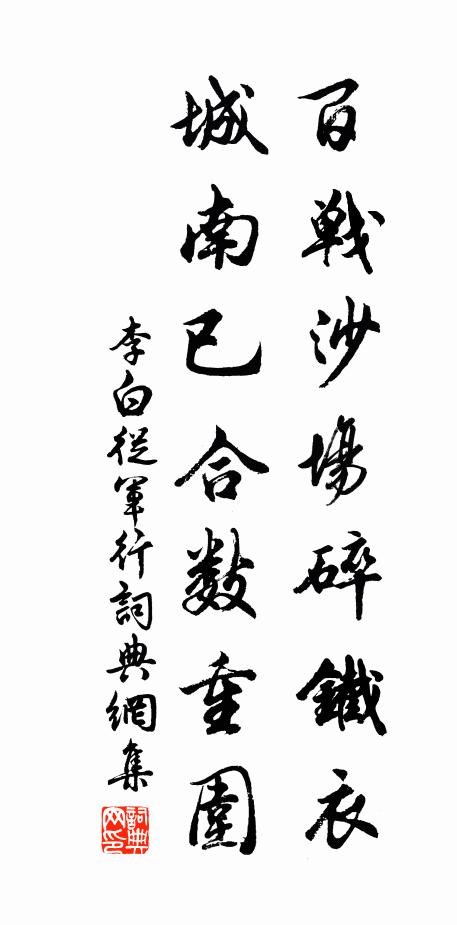 百戦沙場碎鐵衣
城南已合数重圍
李白從軍行詞典網集
詞典网印